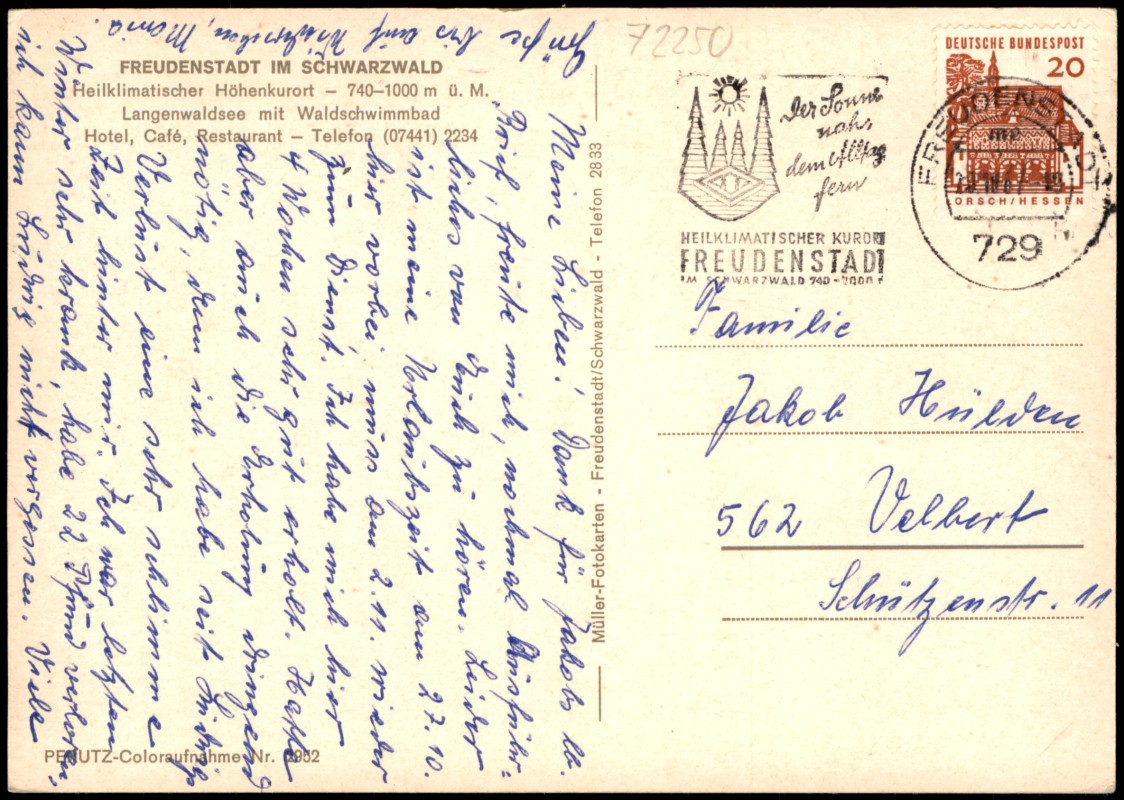 FREUDENSTADT IM SCHWARZWALD
Heilklimatischer Höhenkurort – 740–1000 m ü. M.
Langenwaldsee mit Waldschwimmbad
Hotel, Café, Restaurant – Telefon (07441) 2234
Meine Lieben! Dank für Jakobs lb.
Brief, freute mich, nochmal Ausführ-
liches von Euch zu hören. Leider
ist meine Urlaubszeit am 27.10.
hier vorbei, muss am 2.11. wieder
zum Dienst. Ich habe mich hier
4 Wochen sehr gut erholt. Hatte
aber auch die Erholung dringend
nötig, denn ich habe seit Ludwigs
Verlust eine sehr schlimme
Zeit hinter mir. Ich war letzten
Winter sehr krank, habe 22 Pfund verloren,
ich kann Ludwig nicht vergessen. Viele
Grüße bis auf Wiedersehen, Maria
PERUTZ-Coloraufnahme Nr. 2952
Müller-Fotokarten - Freudenstadt/Schwarzwald - Telefon 2833
72250
Der Sonne
nahe
dem Alltag
fern
HEILKLIMATISCHER KURORT
FREUDENSTADT
IM SCHWARZWALD 740-1000
DEUTSCHE BUNDESPOST
20
LORSCH/HESSEN
FREUDENSTADT
729
Familie
Jakob Hülden
562 Velbert
Schützenstr. 11